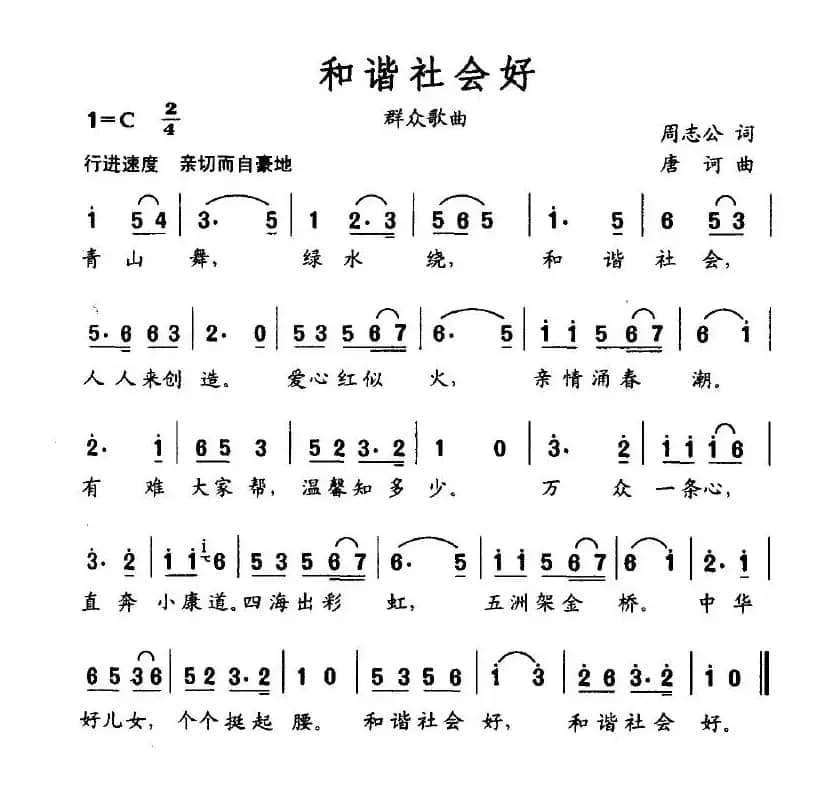 和谐社会好
1=C 2/4
群众歌曲
周志公 词
行进速度 亲切而自豪地
唐 诃 曲
i 5 4 | 3· 5 | 1 2· 3 | 5 6 5 | i· 5 | 6 5 3 |
青山 舞, 绿水 绕, 和 谐 社会,
5· 6 6 3 | 2· 0 | 5 3 5 6 7 | 6· 5 | i i 5 6 7 | 6 i |
人人来创造。 爱心红似 火, 亲情涌春 潮。
2̇· i | 6 5 3 | 5 2 3· 2 | 1 0 | 3̇· 2̇ | i i i 6 |
有 难 大家帮, 温馨知多少。 万 众 一条心,
3̇· 2̇ | i i i 6 | 5 3 5 6 7 | 6· 5 | i i 5 6 7 | 6 i | 2̇· i |
直奔 小康道。四海出彩 虹, 五洲架金 桥。 中华
6 5 3 6 | 5 2 3· 2 | 1 0 | 5 3 5 6 | i 3̇ | 2̇ 6 3̇· 2̇ | i 0 ‖
好儿女, 个个挺起 腰。 和谐社会 好, 和谐社会 好。